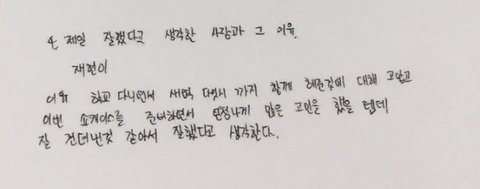 4. 제일 잘했다고 생각한 사람과 그 이유.
재현이
이유 학교 다니면서 새벽 다섯시 까지 함께 해준것에 대해 고맙고
이번 쇼케이스를 준비하면서 엄청나게 많은 고민을 했을 텐데
잘 견뎌낸것 같아서 잘했다고 생각한다.